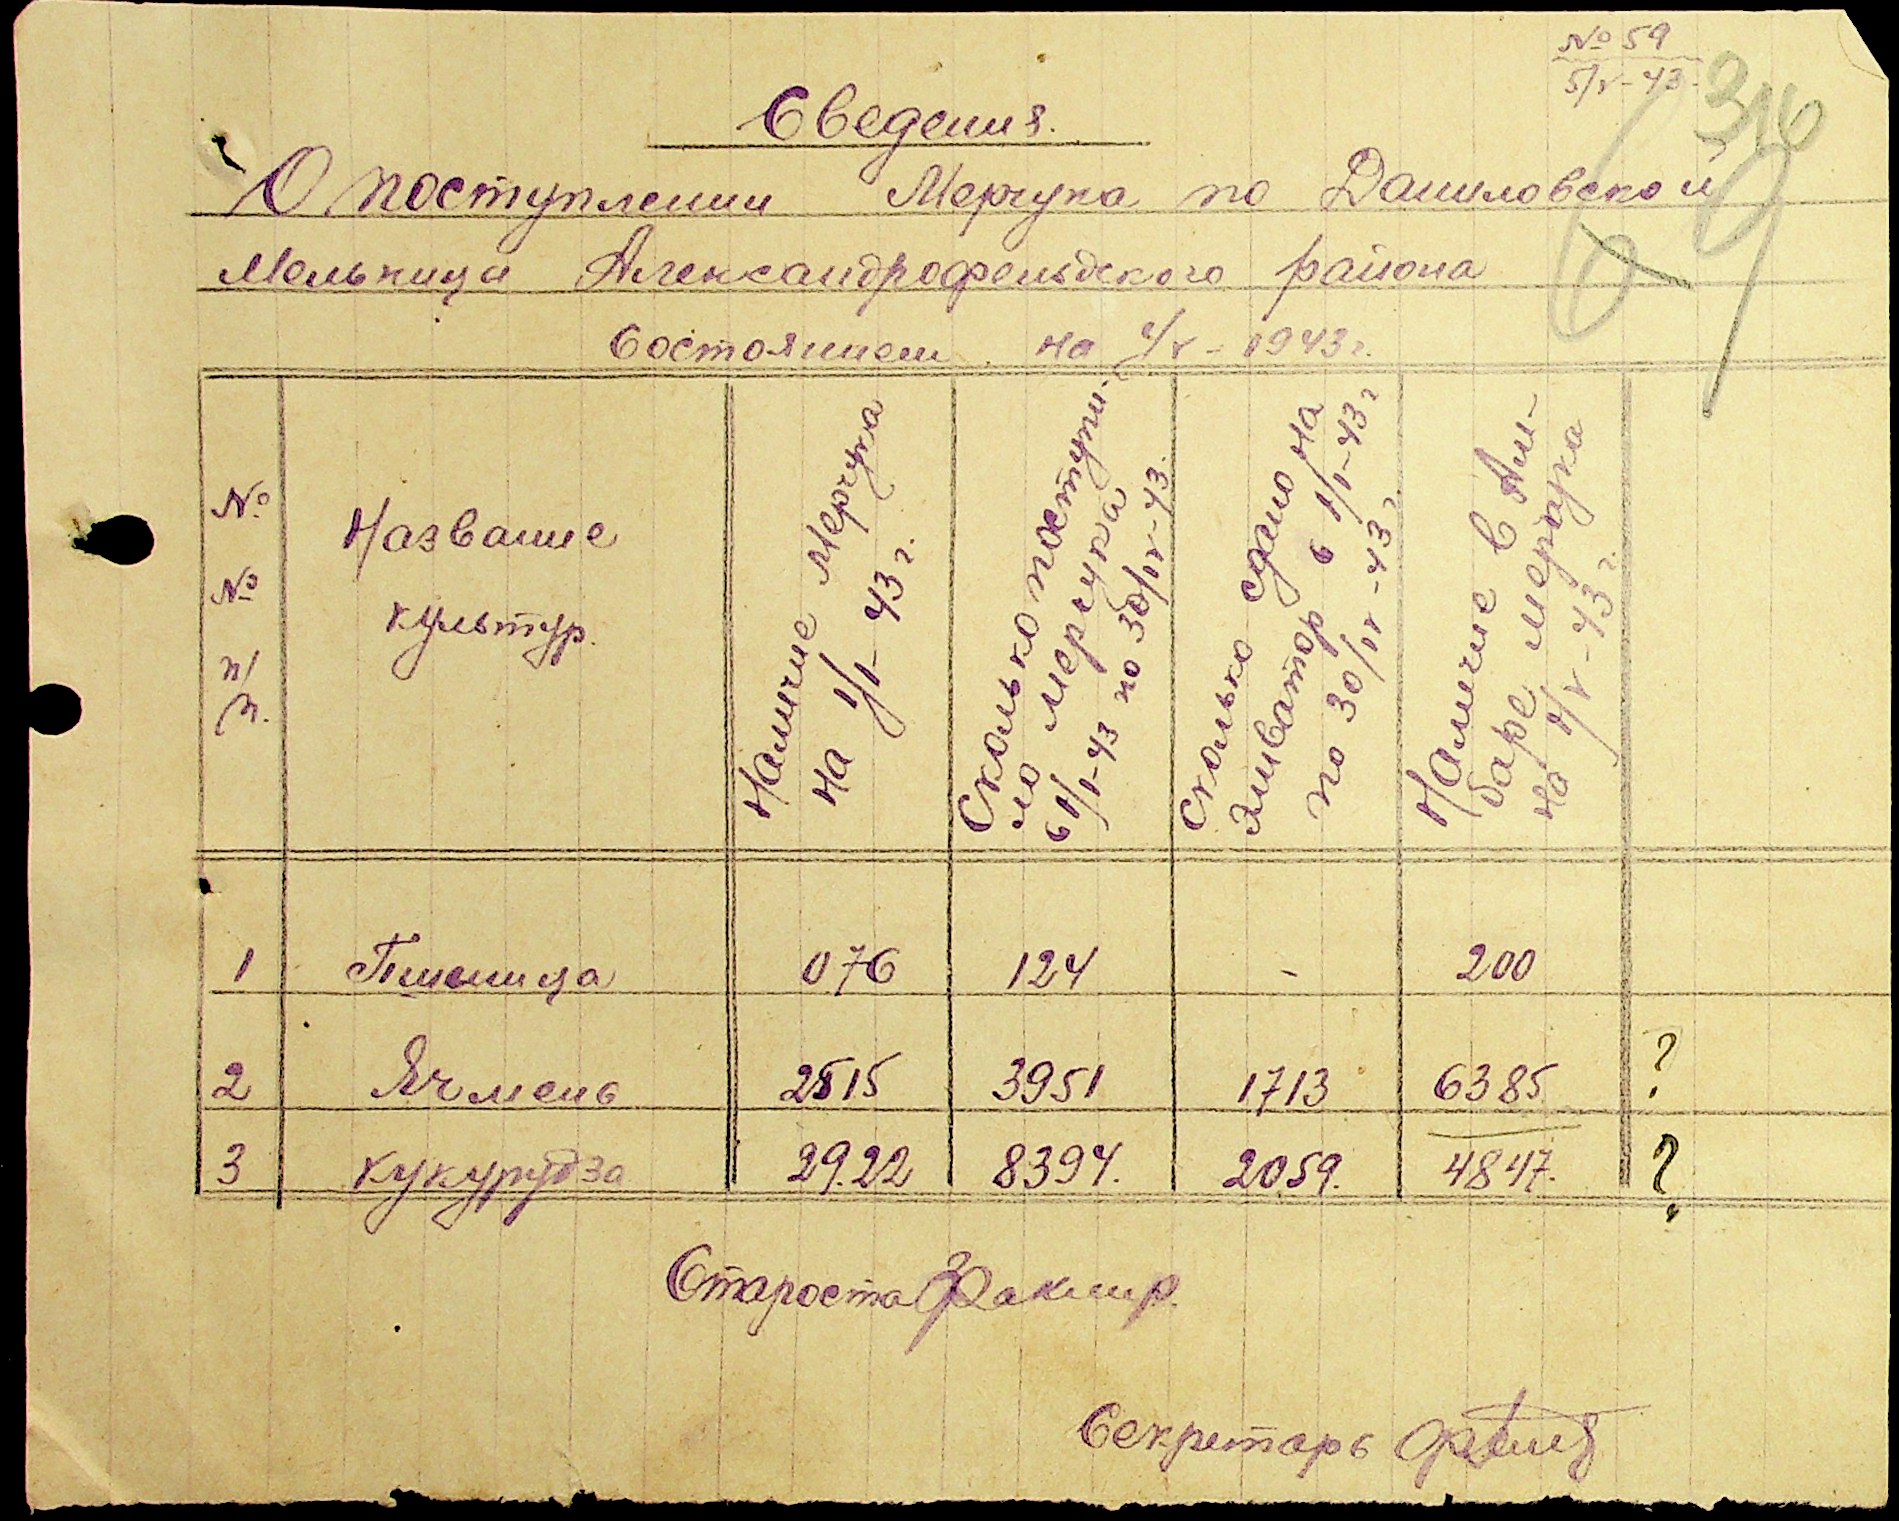 № 59
5/V-43
316
Сведения.
О поступлении Мерчука по Даниловской
Мельница Александрофельдского района
Состоянием на 1/V - 1943 г.
№ № п/п.
Название культур.
Наличие мерчука
на 1/I - 43 г.
Сколько поступи-
ло мерчука
с 1/I-43 по 30/IV-43.
Сколько сдано на
эливатор с 1/I-43 г
по 30/IV-43 г.
Наличие в Ам-
баре мерчука
на 1/V - 43 г.
1 Пшеница 076 124 - 200
2 Ячмень 2515 3951 1713 6385 ?
3 Кукурудза 29.22 8394. 2059. 4847. ?
Староста
Секретарь